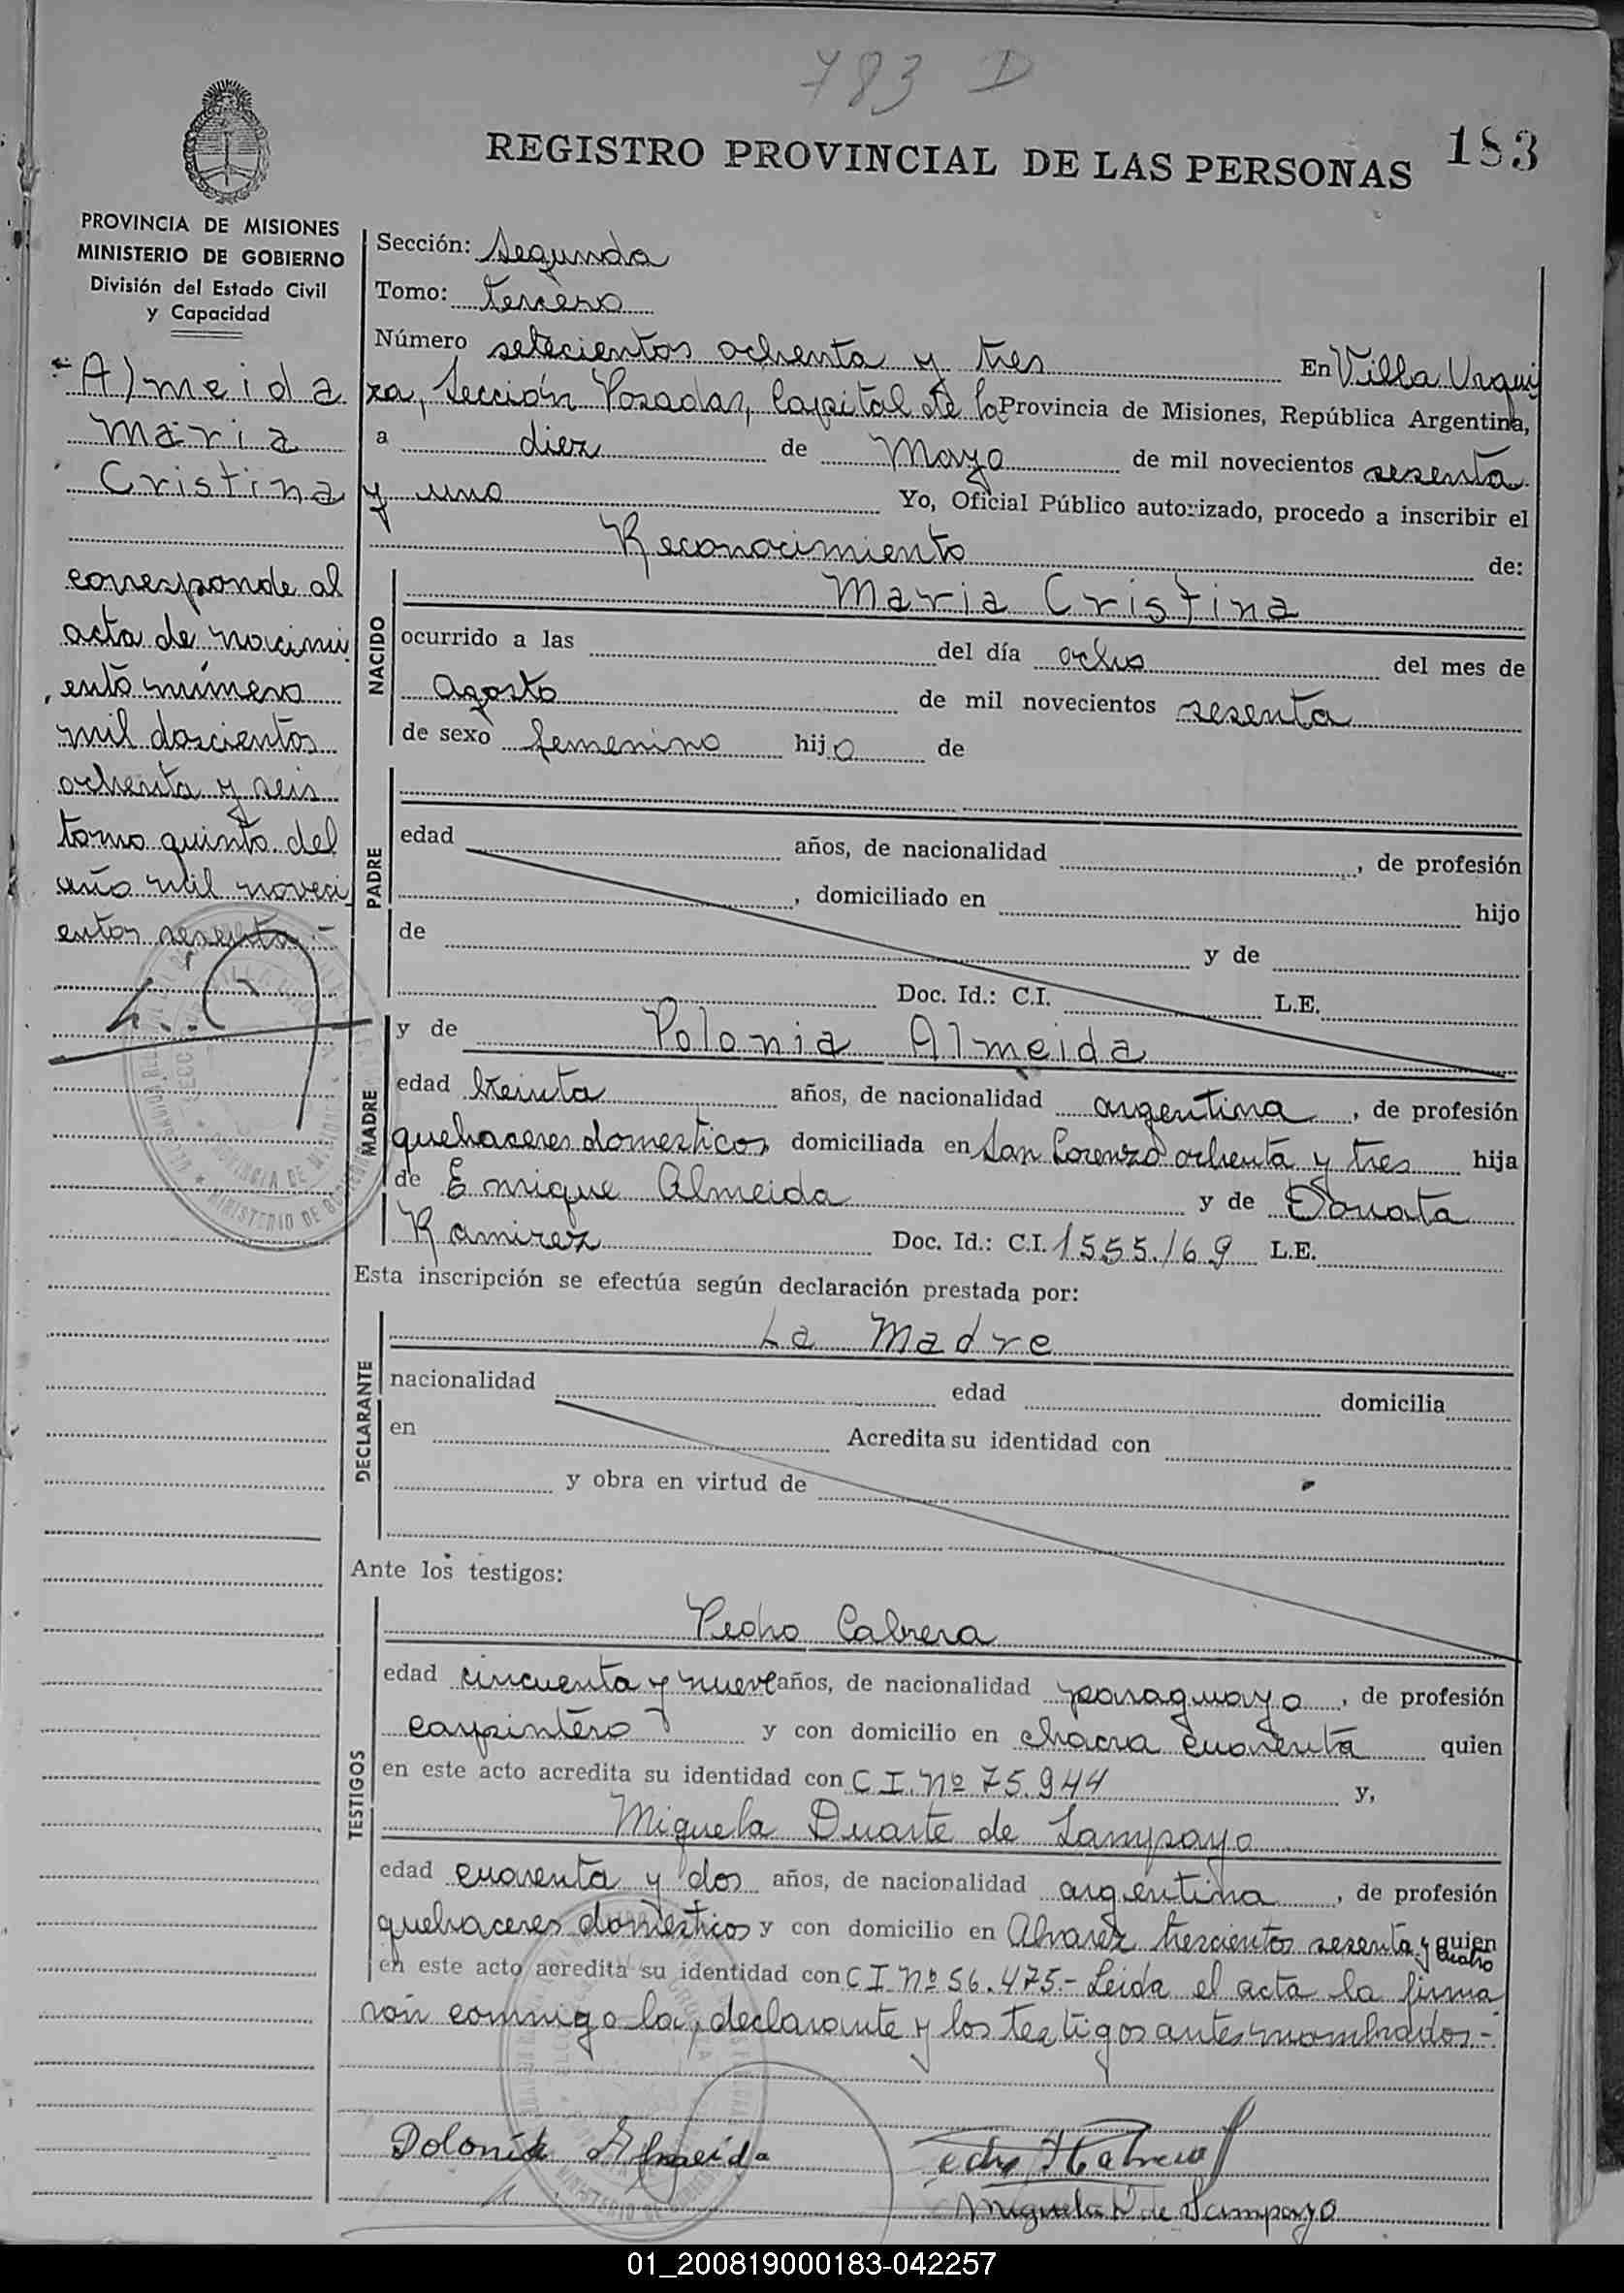 783 D
REGISTRO PROVINCIAL DE LAS PERSONAS 183
PROVINCIA DE MISIONES
MINISTERIO DE GOBIERNO
División del Estado Civil
y Capacidad
Almeida
Maria
Cristina
corresponde al
acta de nacimi
ento número
mil doscientos
ochenta y seis
tomo quinto del
año mil noveci
entos sesenta.-
Sección: Segunda
Tomo: tercero
Número setecientos ochenta y tres En Villa Urqui
za, Sección Posadas, Capital de la Provincia de Misiones, República Argentina,
a diez de Mayo de mil novecientos sesenta
y uno Yo, Oficial Público autorizado, procedo a inscribir el
Reconocimiento de:
NACIDO
Maria Cristina
ocurrido a las del día ocho del mes de
agosto de mil novecientos sesenta
de sexo femenino hijo de
PADRE
edad años, de nacionalidad , de profesión
, domiciliado en hijo
de y de
Doc. Id.: C.I. L.E.
MADRE
y de Polonia Almeida
edad treinta años, de nacionalidad argentina, de profesión
quehaceres domesticos domiciliada en San Lorenzo ochenta y tres hija
de Enrique Almeida y de Donata
Ramirez Doc. Id.: C.I. 155.169 L.E.
Esta inscripción se efectúa según declaración prestada por:
DECLARANTE
La Madre
nacionalidad edad domicilia
en Acredita su identidad con
y obra en virtud de
Ante los testigos:
TESTIGOS
Pedro Cabrera
edad cincuenta y nueve años, de nacionalidad paraguayo, de profesión
carpintero y con domicilio en chacra cuarenta quien
en este acto acredita su identidad con C I. Nº 75.944 y,
Miguela Duarte de Sampayo
edad cuarenta y dos años, de nacionalidad argentina, de profesión
quehaceres domésticos y con domicilio en Alvarez trescientos sesenta y cuatro quien
en este acto acredita su identidad con C I Nº 56.475.- Leida el acta la firma
rón conmigo la, declarante y los testigos antes nombrados.-
Polonia Almeida
Pedro H Cabrera
Miguela D de Sampayo
01_200819000183-042257